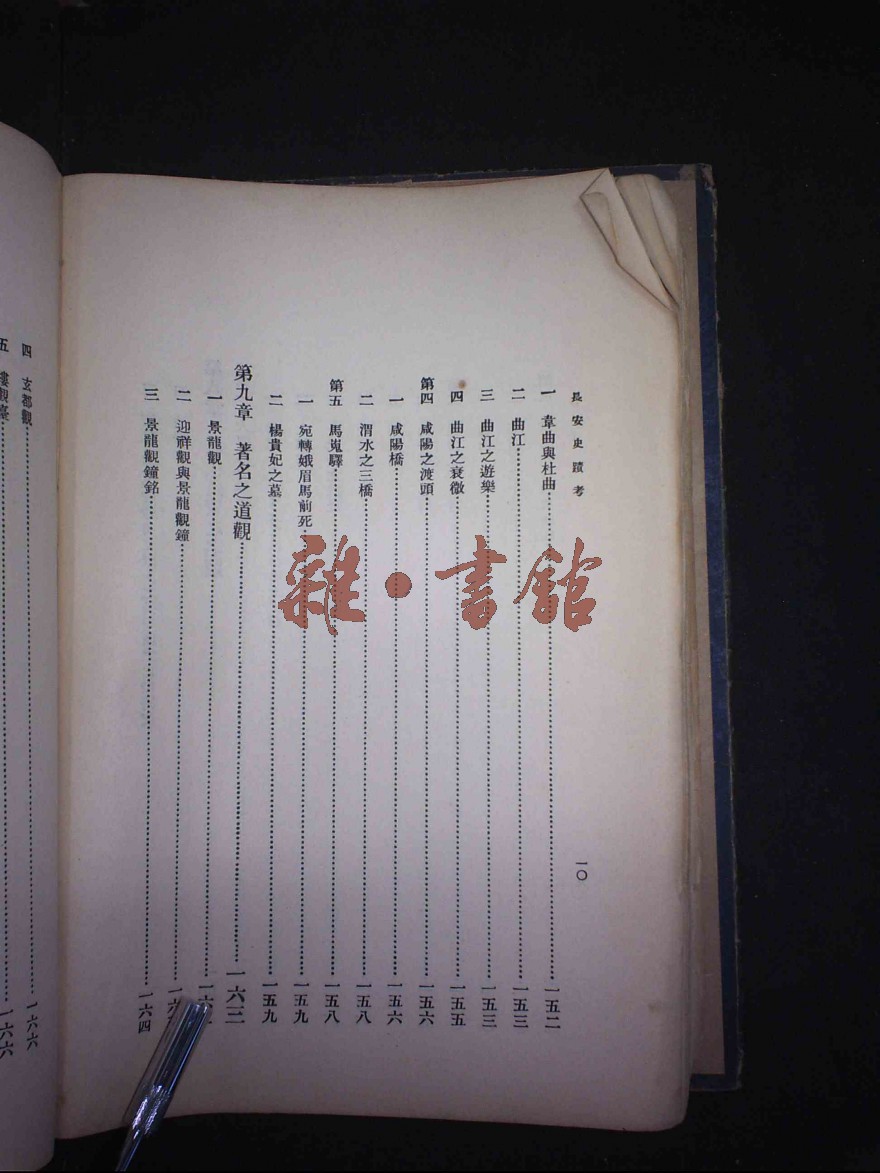 長安史蹟考
一〇
一 韋曲與杜曲……一五二
二 曲江……一五三
三 曲江之遊樂……一五三
四 曲江之衰微……一五五
第四 咸陽之渡頭……一五六
一 咸陽橋……一五六
二 渭水之三橋……一五八
第五 馬嵬驛……一五八
一 宛轉娥眉馬前死……一五九
二 楊貴妃之墓……一五九
第九章 著名之道觀……一六二
一 景龍觀……
二 迎祥觀與景龍觀鐘……
三 景龍觀鐘銘……一六四
四 玄都觀……一六六
五 樓觀臺……一六六
雜·書館